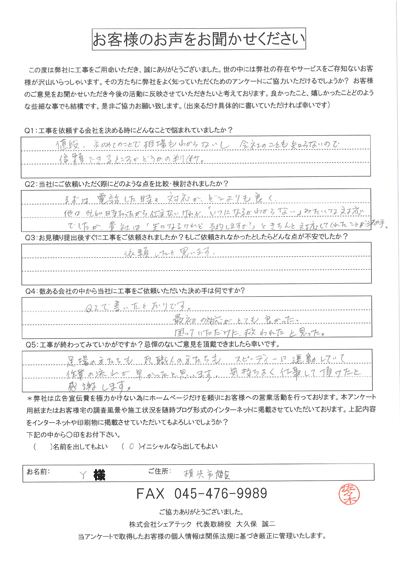 お客様のお声をお聞かせください
この度は弊社に工事をご用命いただき、誠にありがとうございました。世の中には弊社の存在やサービスをご存知ないお客
様が沢山いらっしゃいます。その方たちに弊社をよく知っていただくためのアンケートにご協力いただけるでしょうか? お客様
のご意見をお聞かせいただき今後の活動に反映させていただきたいと考えております。良かったこと、嬉しかったことどのよう
な些細な事でも結構です。是非ご協力お願い致します。(出来るだけ具体的に書いていただければ幸いです)
Q1:工事を依頼する会社を決める時にどんなことで悩まれていましたか?
値段、
信頼できるところかどうかの判断。
Q2:当社にご依頼いただく際にどのような点を比較・検討されましたか?
まずは電話した時の対応がどこよりも良く、
Q3:お見積り提出後すぐに工事をご依頼されましたか?もしご依頼されなかったとしたらどんな点が不安でしたか?
依頼したと思います。
Q4:数ある会社の中から当社に工事をご依頼いただいた決め手は何ですか?
Q2で書いたとおりです。
最初の対応がとても良かった。
困っていただけに救われたと思った。
Q5:工事が終わってみていかがですか?忌憚のないご意見を頂戴できましたら幸いです。
足場の方たちも お職人の方たちも スピーディーに
作業の流れが早かったと思います。気持ちよく仕事して頂けたと
感謝します。
*弊社は広告宣伝費を極力かけない為にホームページだけを頼りにお客様への営業活動を行っております。本アンケート
用紙またはお客様宅の調査風景や施工状況を随時ブログ形式のインターネットに掲載させていただいております。上記内容
をインターネットや印刷物に掲載させていただいてもよろしいでしょうか?
下記の中から〇印をお付下さい。
( )名前を出してもよい (○)イニシャルなら出してもよい
お名前: Y 様 ご住所: 横浜市
FAX 045-476-9989
ご協力ありがとうございました。
株式会社シェアテック 代表取締役 大久保 誠二
当アンケートで取得したお客様の個人情報は関係法規に基づき厳正に管理いたします。